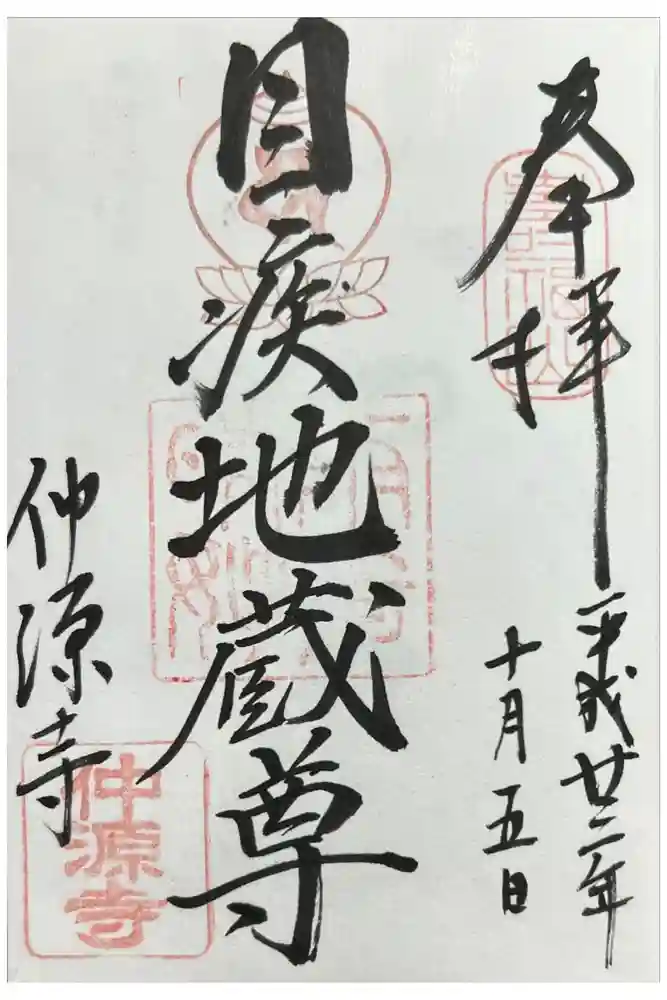 奉拝
平成廿二年
十月五日
目疾地蔵尊
仲源寺
壽福山
仲源寺